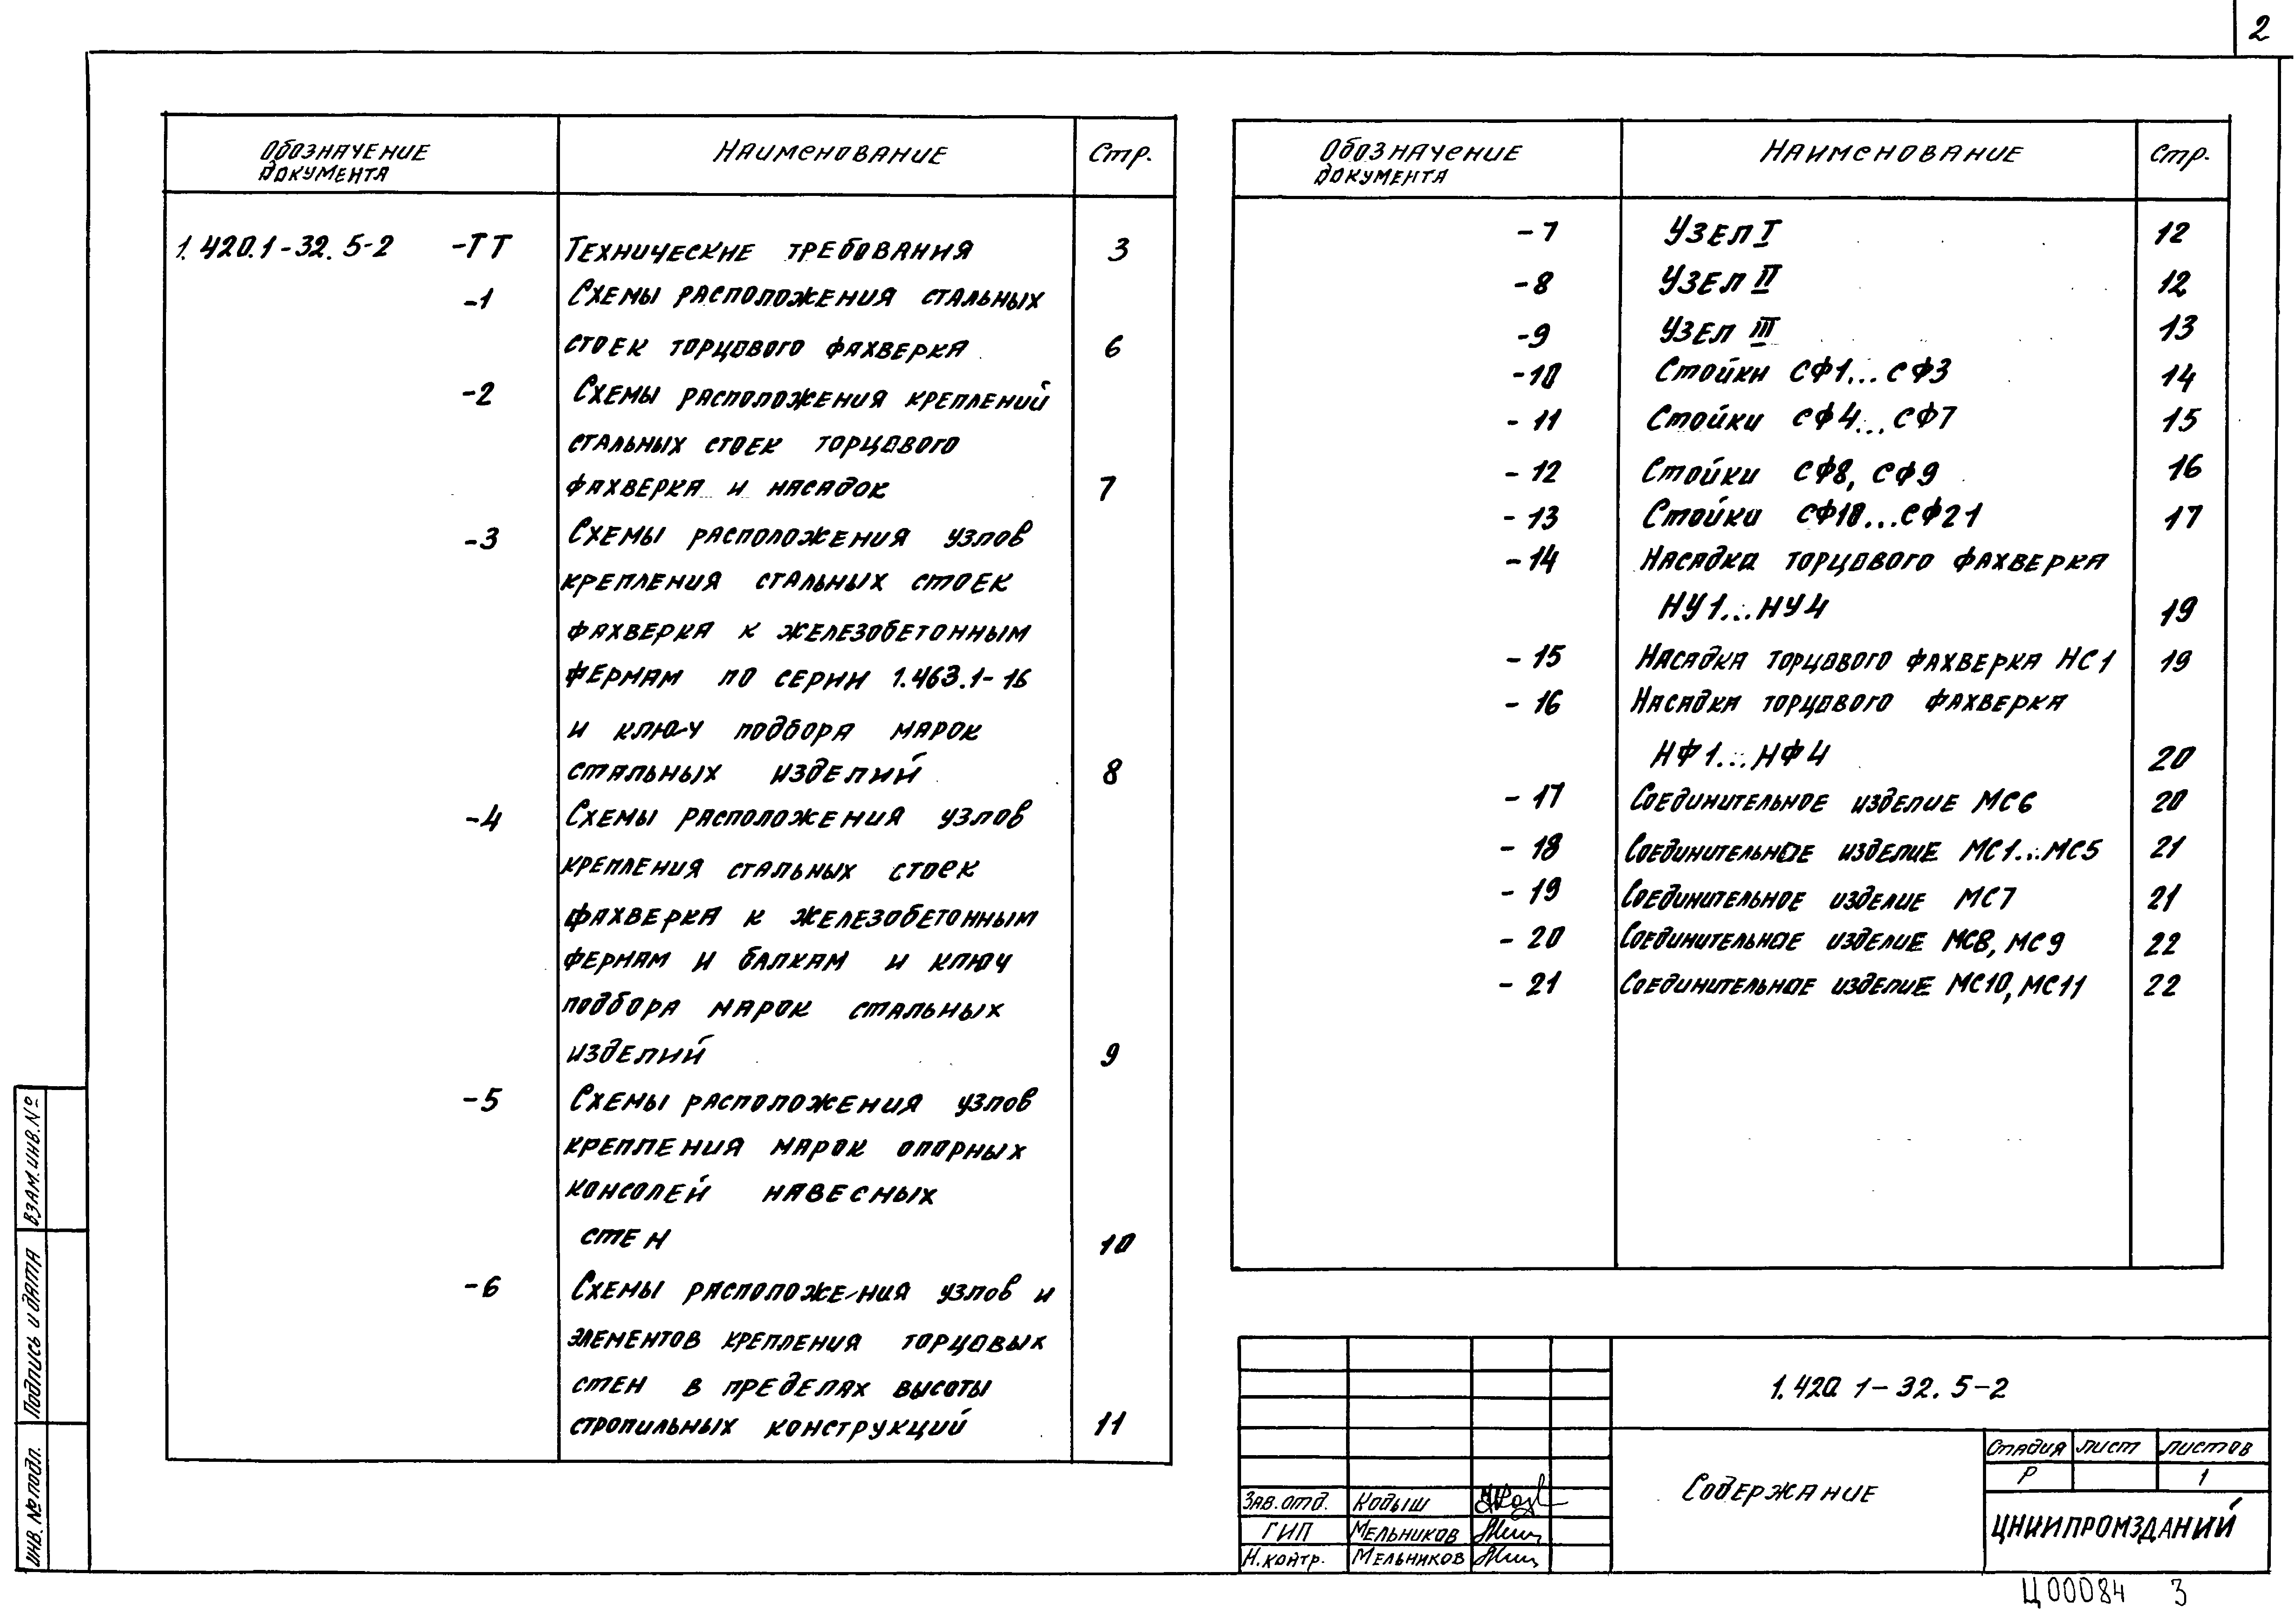 2
Обозначение документа Наименование Стр.
1.420.1-32.5-2 -ТТ Технические требования 3
-1 Схемы расположения стальных
стоек торцового фахверка 6
-2 Схемы расположения креплений
стальных стоек торцового
фахверка и насадок 7
-3 Схемы расположения узлов
крепления стальных стоек
фахверка к железобетонным
фермам по серии 1.463.1-16
и ключ подбора марок
стальных изделий 8
-4 Схемы расположения узлов
крепления стальных стоек
фахверка к железобетонным
фермам и балкам и ключ
подбора марок стальных
изделий 9
-5 Схемы расположения узлов
крепления марок опорных
консолей навесных
стен 10
-6 Схемы расположения узлов и
элементов крепления торцовых
стен в пределах высоты
стропильных конструкций 11
Обозначение документа Наименование Стр.
-7 Узел I 12
-8 Узел II 12
-9 Узел III 13
-10 Стойки СФ1...СФ3 14
-11 Стойки СФ4...СФ7 15
-12 Стойки СФ8, СФ9 16
-13 Стойки СФ10...СФ21 17
-14 Насадка торцового фахверка
НУ1...НУ4 19
-15 Насадка торцового фахверка НС1 19
-16 Насадка торцового фахверка
НФ1...НФ4 20
-17 Соединительное изделие МС6 20
-18 Соединительное изделие МС1...МС5 21
-19 Соединительное изделие МС7 21
-20 Соединительное изделие МС8, МС9 22
-21 Соединительное изделие МС10, МС11 22
Взам. инв. №
Подпись и дата
Инв. № подл.
1.420.1-32.5-2
Содержание
Стадия Лист Листов
Р 1
ЦНИИПРОМЗДАНИЙ
Зав. отд. Кодыш
ГИП Мельников
Н. контр. Мельников
Ц00084 3